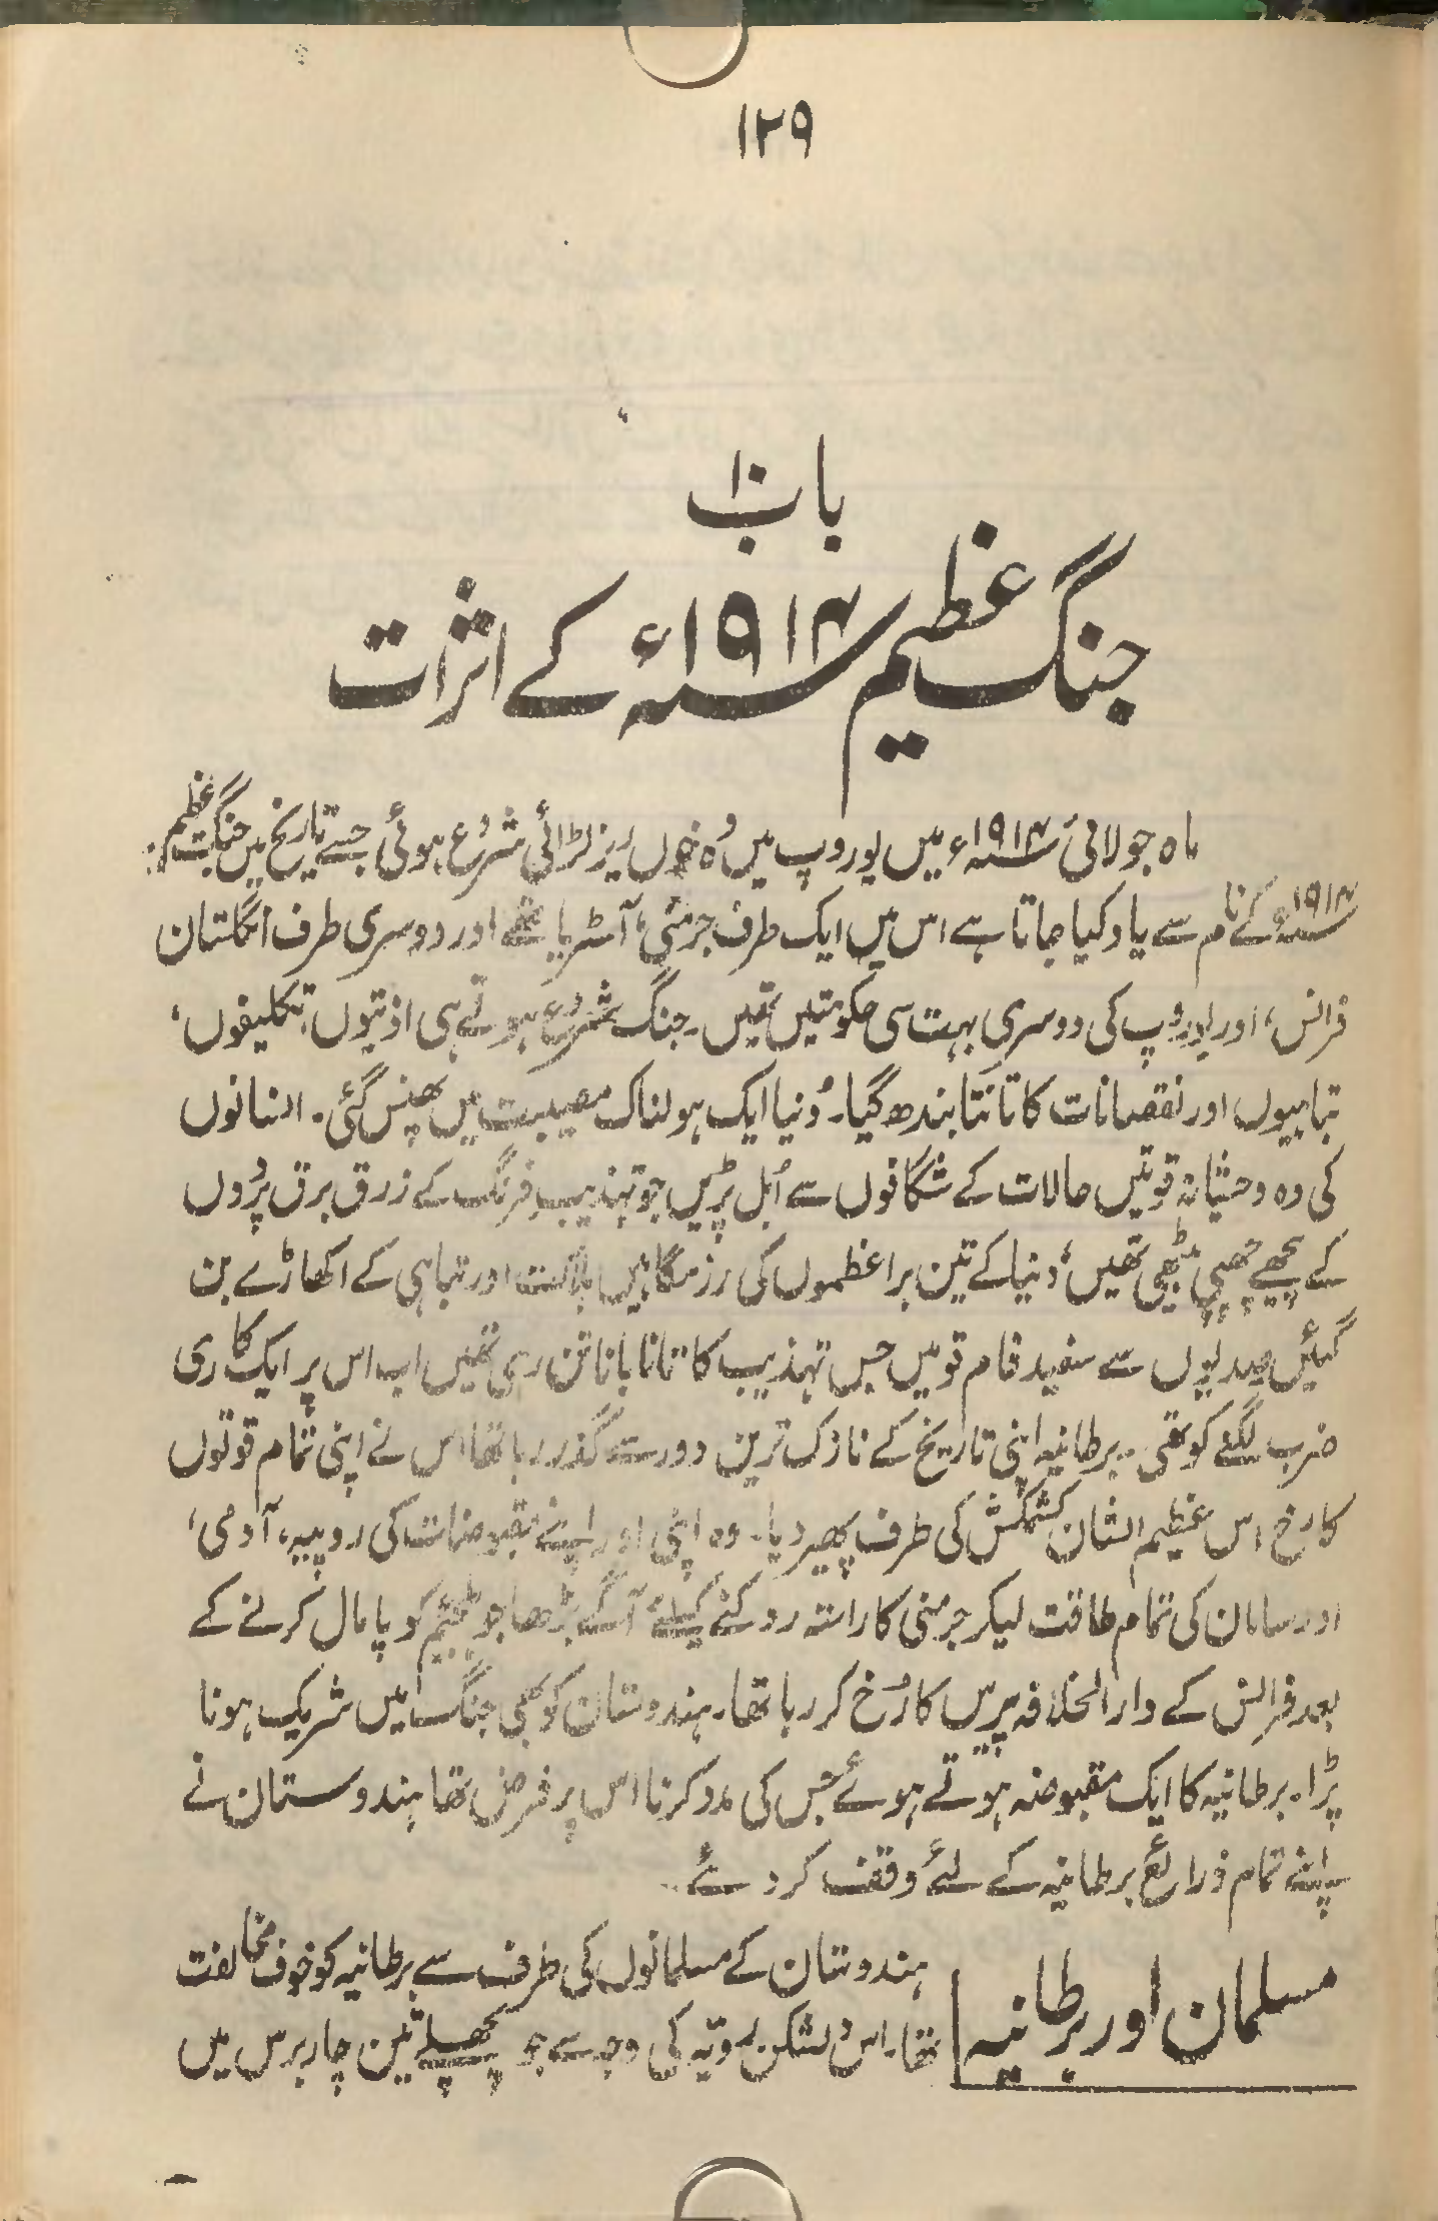 ۱۲۹
باب ۱۰
جنگ عظیم ۱۹۱۴ء کے اثرات
ماہ جولائی ۱۹۱۴ء میں یوروپ میں وُہ خوں ریز لڑائی شرُوع ہوئی جسے تاریخ میں جنگ عظیم
۱۹۱۴ء کے نام سے یاد کیا جاتا ہے اس میں ایک طرف جرمنی، آسٹریا تھے اور دوسری طرف انگلستان
فرانس، اور یوروپ کی دوسری بہت سی حکومتیں تھیں۔ جنگ شرُوع ہوتے ہی اذیتوں، تکلیفوں،
تباہیوں اور نقصانات کا تانتا بندھ گیا۔ دُنیا ایک ہولناک مصیبت میں پھنس گئی۔ انسانوں
کی وہ وحشیانہ قوتیں حالات کے شگافوں سے اُبل پڑیں جو تہذیب فرنگ کے زرق برق پرُدوں
کے پیچھے چھپی بیٹھی تھیں، دنیا کے تین براعظموں کی رزمگاہیں ہلاکت اور تباہی کے اکھاڑے بن
گئیں صدیوں سے سفید فام قومیں جس تہذیب کا تانا بانا تن رہی تھیں اب اس پر ایک کاری
ضرب لگنے کو تھی۔ برطانیہ اپنی تاریخ کے نازک ترین دور سے گذر رہا تھا اس نے اپنی تمام قوتوں
کا رخ اس عظیم الشان کشمکش کی طرف پھیر دیا۔ وہ اپنی اور اپنے مقبوضات کی روپیہ، آدمی،
اور سامان کی تمام طاقت لیکر جرمنی کا راستہ روکنے کیلئے آگے بڑھا جو بلجئیم کو پامال کرنے کے
بعد فرانس کے دارالخلافہ پیرس کا رُخ کر رہا تھا۔ ہندوستان کو بھی جنگ میں شریک ہونا
پڑا۔ برطانیہ کا ایک مقبوضہ ہوتے ہوئے جس کی مدد کرنا اس پر فرض تھا ہندوستان نے
اپنے تمام ذرائع برطانیہ کے لئے وقف کر دئے۔
مسلمان اور برطانیہ
ہندوستان کے مسلمانوں کی طرف سے برطانیہ کو خوف مخالفت
تھا۔ اس دلشکن رویّہ کی وجہ سے جو پچھلے تین چار برس میں